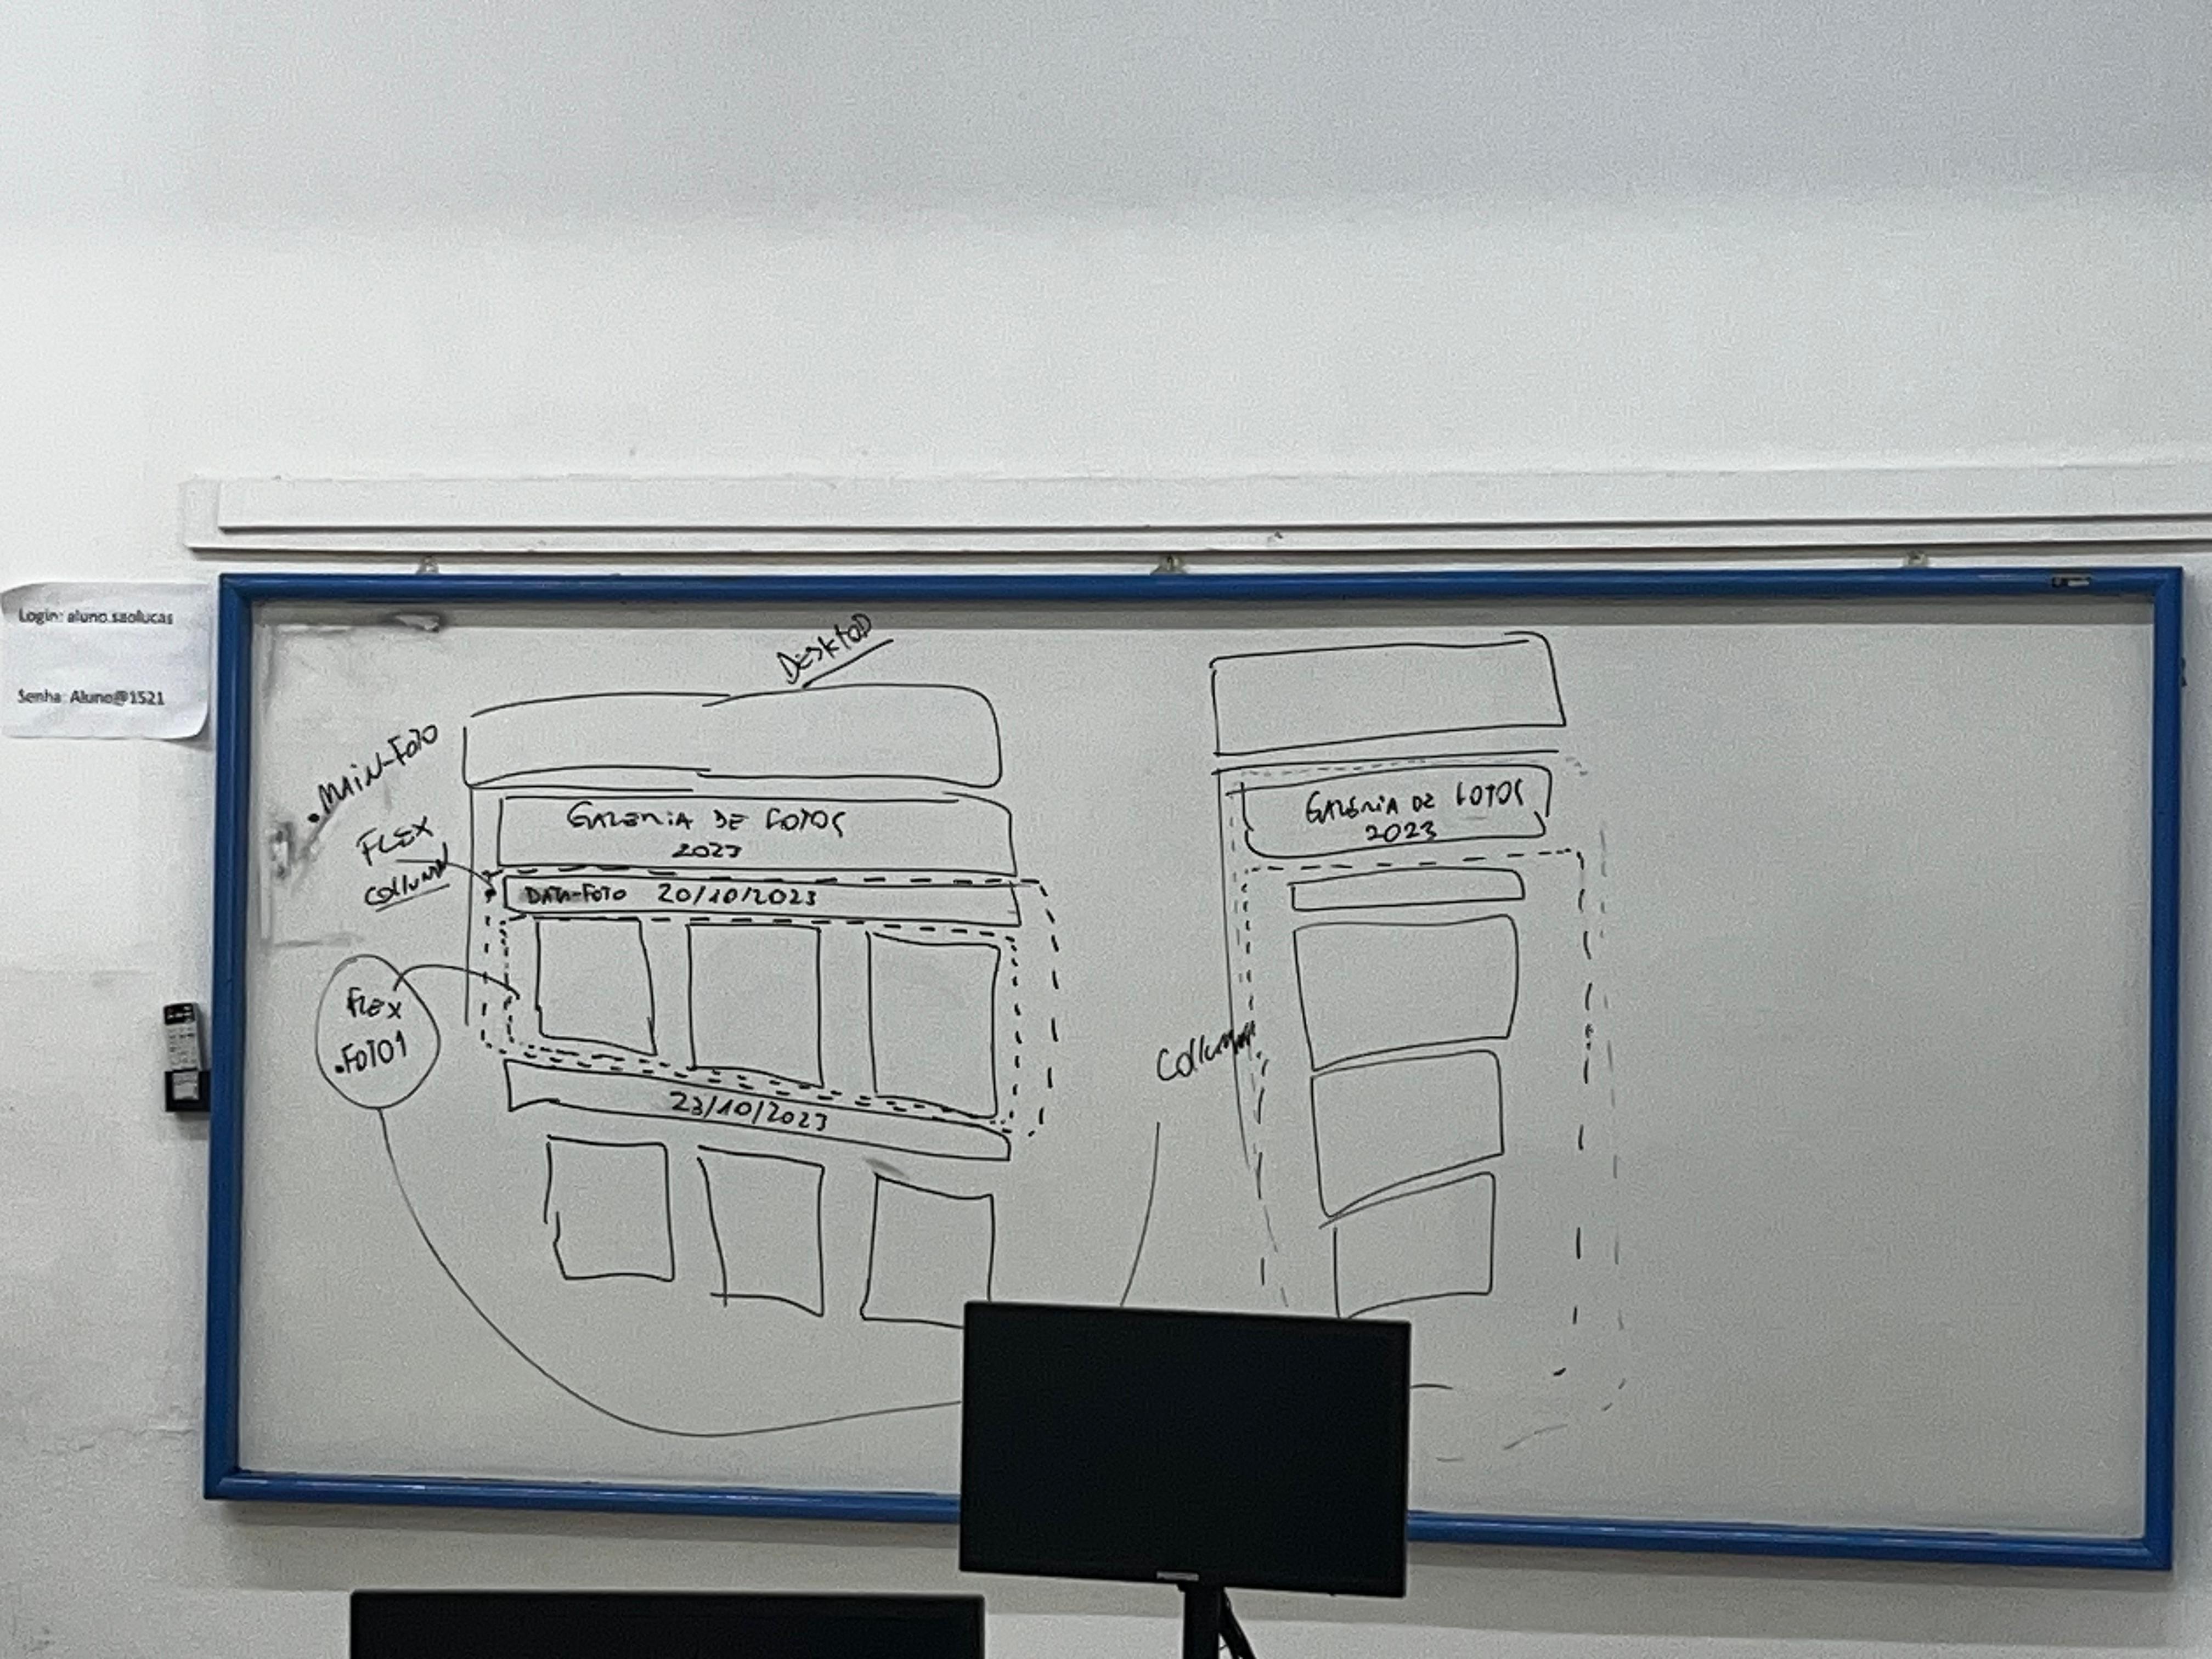 Login: aluno.saolucas
Senha: Aluno@1521
DESKTOP
.MAIN-FOTO
FLEX
COLLUMN
GALERIA DE FOTOS
2023
DATA-FOTO 20/10/2023
FLEX
.FOTO1
23/10/2023
GALERIA DE FOTOS
2023
COLLUMN